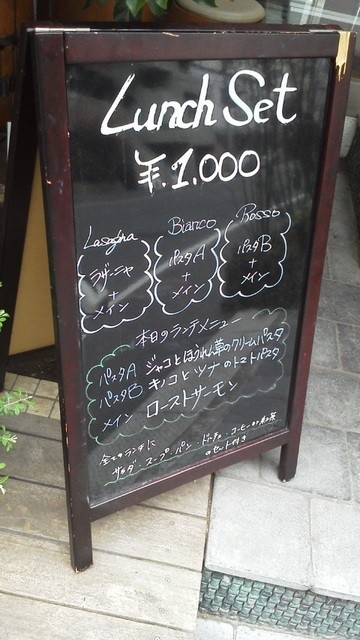 Lunch Set
¥.1.000
Lasagna
ラザーニャ
+
メイン
Bianco
パスタA
+
メイン
Rosso
パスタB
+
メイン
本日のランチメニュー
パスタA ジャコとほうれん草のクリームパスタ
パスタB キノコとツナのトマトパスタ
メイン ローストサーモン
全てのランチに
サラダ・スープ・パン・ドルチェ・コーヒーor紅茶
のセット付き